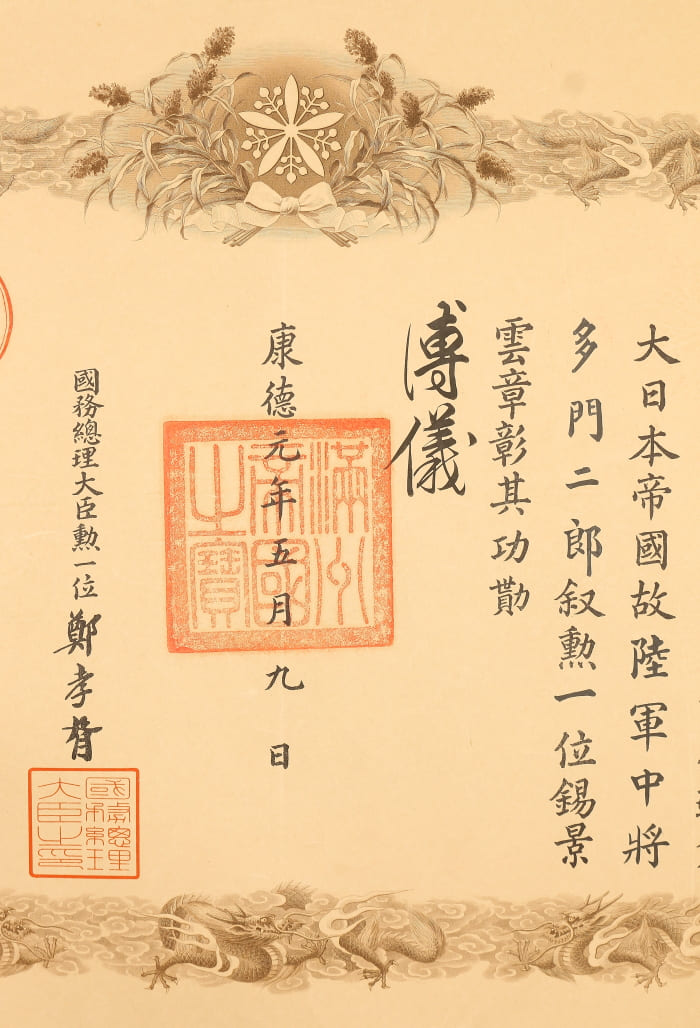 大日本帝國故陸軍中將
多門二郎叙勲一位錫景
雲章彰其功勩
溥儀
康德元年五月九日
滿州帝國之寶
國務總理大臣勲一位鄭孝胥
國務總理大臣之印